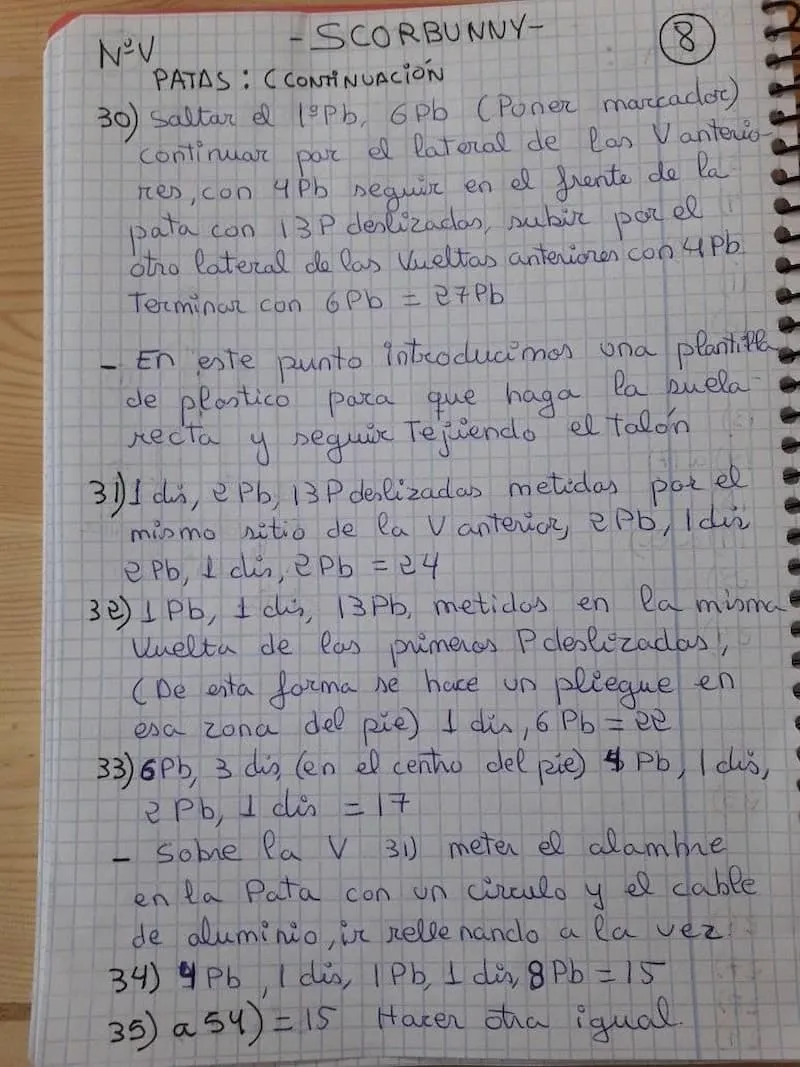 NºV - SCORBUNNY - 8
PATAS: (CONTINUACIÓN
30) Saltar el 1ºPb, 6Pb (Poner marcador)
continuar por el lateral de las V anterio-
res, con 4Pb seguir en el frente de la
pata con 13P deslizadas, subir por el
otro lateral de las Vueltas anteriores con 4Pb
Terminar con 6Pb = 27Pb
- En este punto introducimos una plantilla
de plastico para que haga la suela
recta y seguir Tejiendo el talón
31) 1 dis, 2Pb, 13P deslizadas metidas por el
mismo sitio de la V anterior, 2Pb, 1 dis
2Pb, 1 dis, 2Pb = 24
32) 1Pb, 1 dis, 13Pb, metidos en la misma
Vuelta de las primeras P deslizadas,
(De esta forma se hace un pliegue en
esa zona del pie) 1 dis, 6Pb = 22
33) 6Pb, 3 dis, (en el centro del pie) 4 Pb, 1 dis,
2Pb, 1 dis = 17
- Sobre la V 31) meter el alambre
en la Pata con un círculo y el cable
de aluminio, ir rellenando a la vez.
34) 4Pb, 1 dis, 1Pb, 1 dis, 8Pb = 15
35) a 54) = 15 Hacer otra igual.